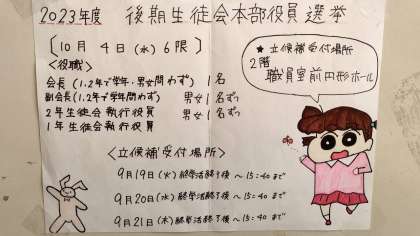 2023年度 後期生徒会本部役員選挙
〔10月4日(水)6限〕
<役職>
会長(1.2年で学年・男女問わず) 1名
副会長(1.2年で学年問わず) 男女1名ずつ
2年生徒会執行役員 男女1名ずつ
1年生徒会執行役員
★立候補受付場所
2階
職員室前円形ホール
<立候補受付場所>
9月19日(火)終学活終了後～15:40まで
9月20日(水)終学活終了後～15:40まで
9月21日(木)終学活終了後～15:40まで